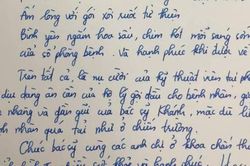 Ấm lòng với gói xôi ruốc từ thiện
Bình yên ngắm hoa sấu, chim hót mỗi sáng
của cổ phòng bệnh. Và hạnh phúc khi được về
Trên bất cả, là nụ cười của kỹ thuật viên tại ph
dịu dàng ân cần của hộ lý gội đầu cho bệnh nhân,
nhàng và dận giữ của bác sỹ Khánh, mặc dù
nhân qua tai như ở chiến trường.
Chúc bác sỹ cùng các anh chị ở khoa chấn